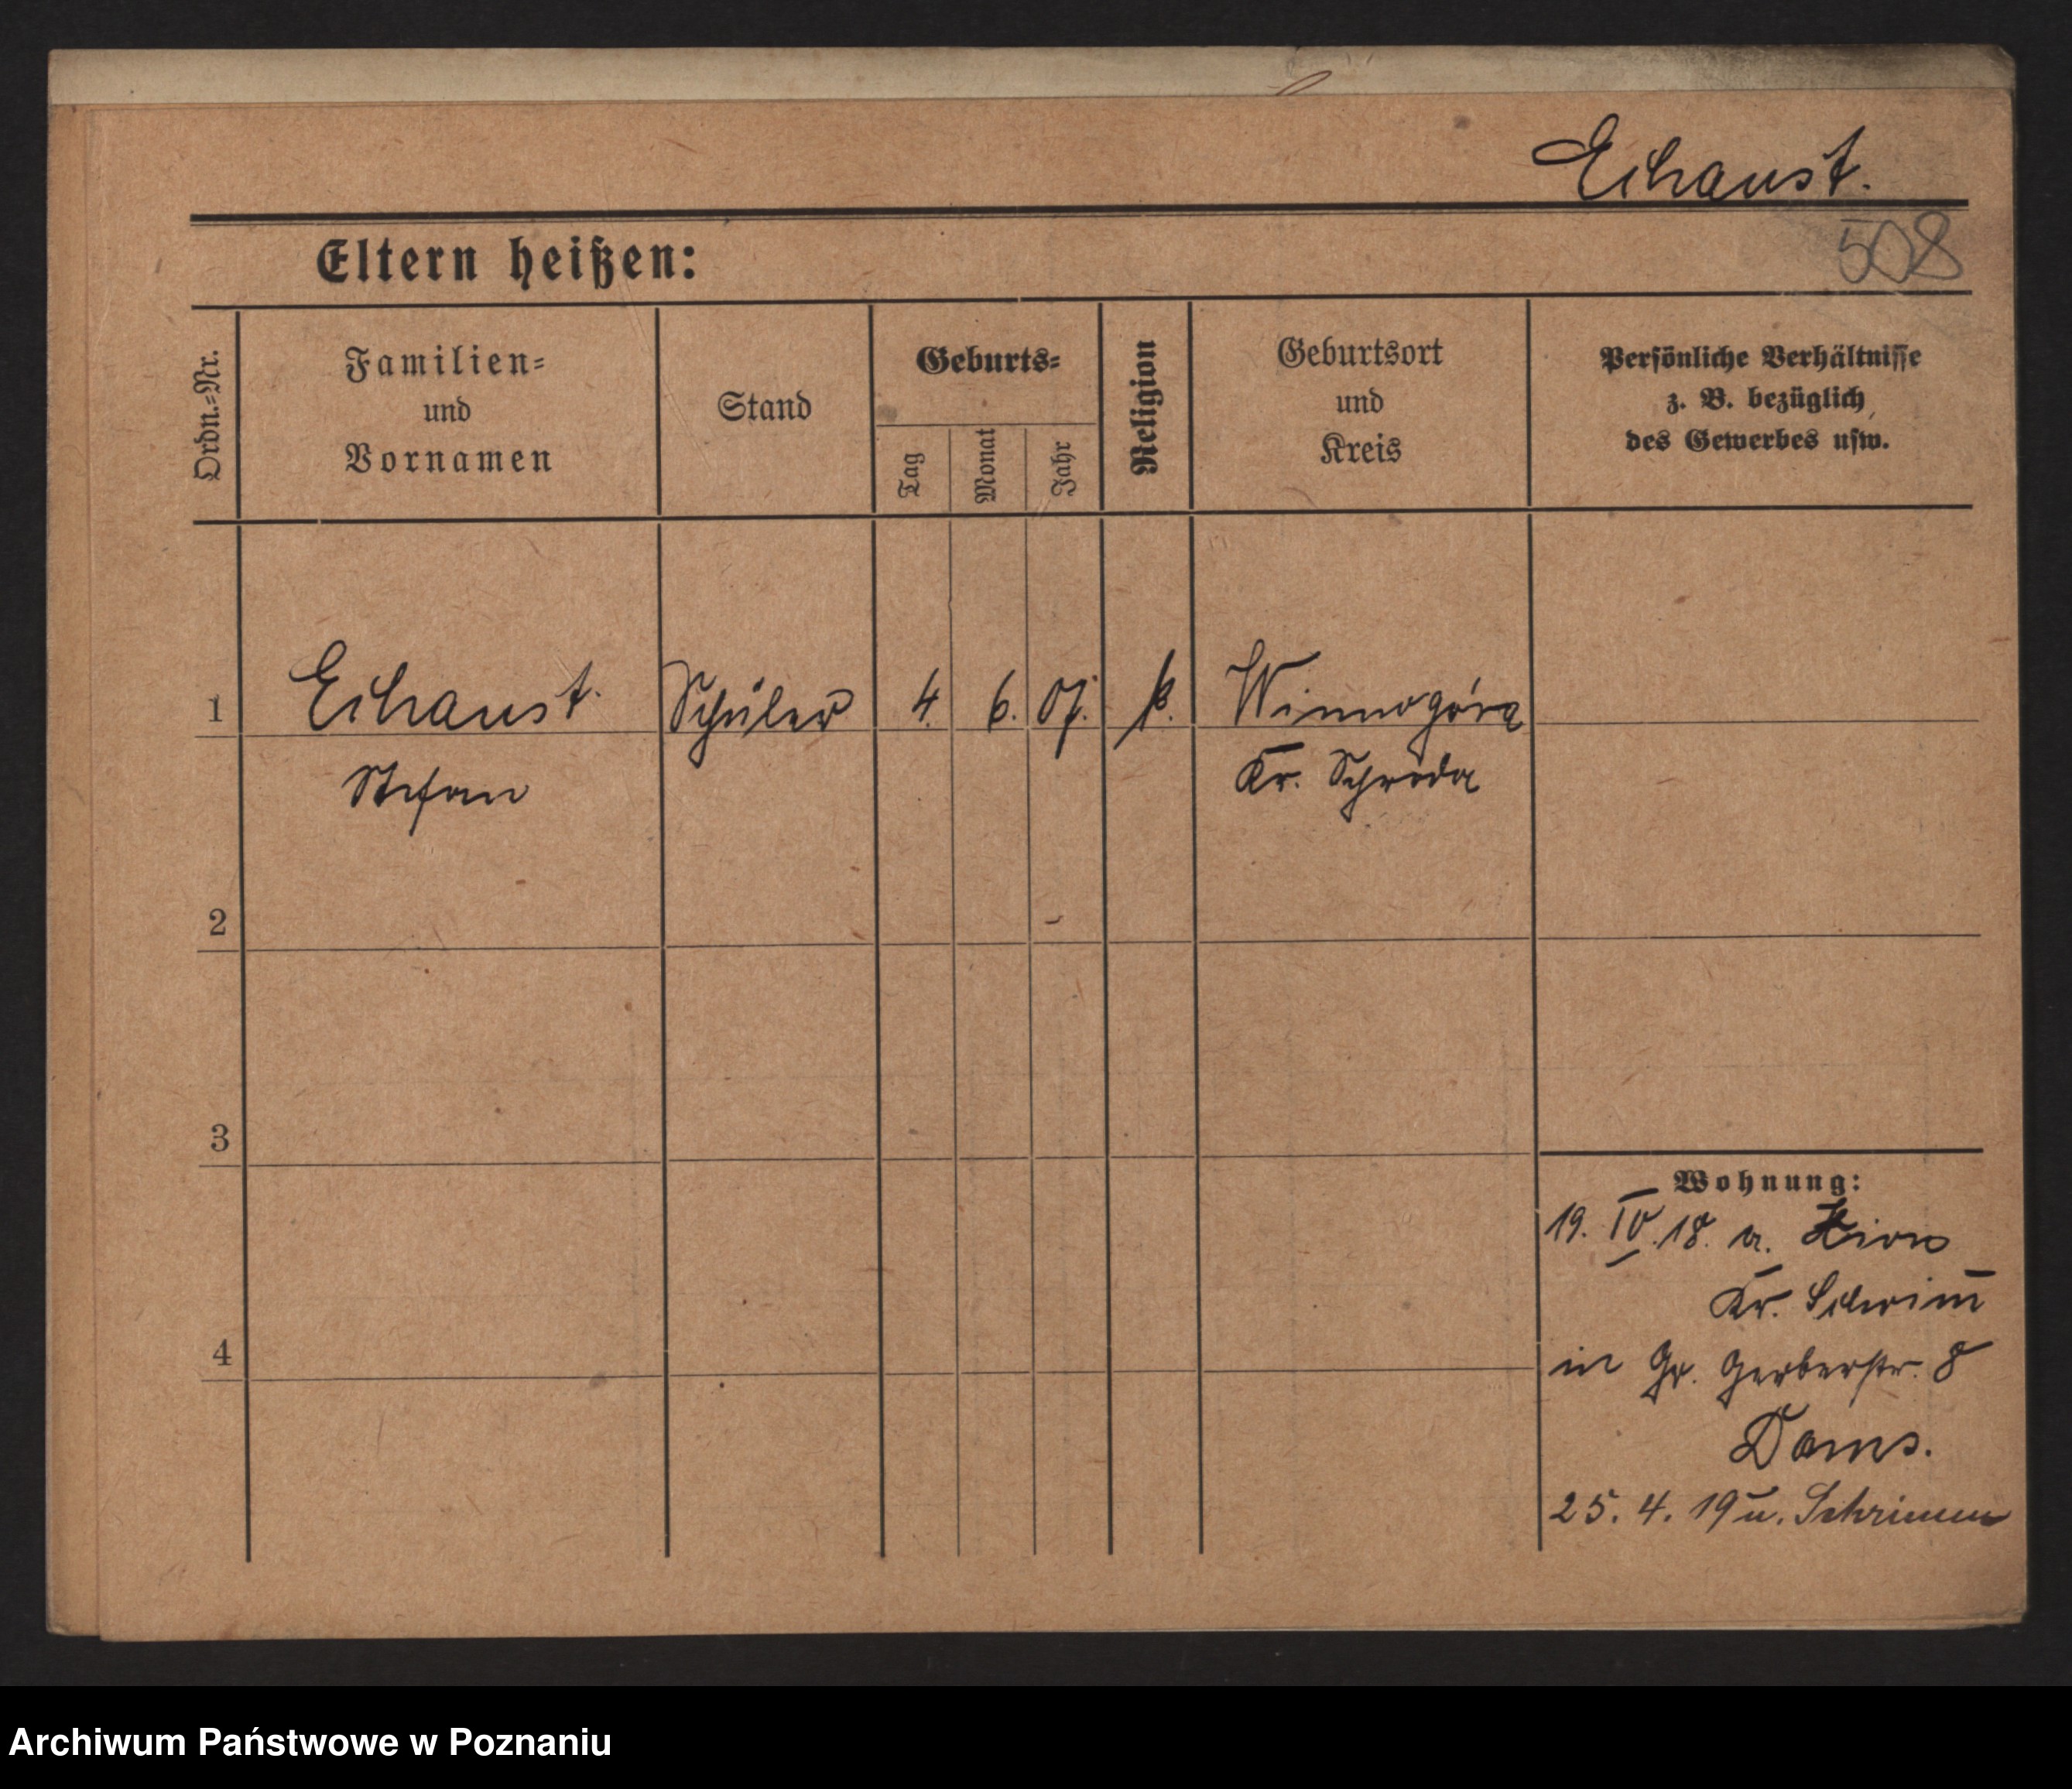 Echaust.
508
Eltern heißen:
Ordn.-Nr.
Familien-
und
Vornamen
Stand
Geburts-
Tag
Monat
Jahr
Religion
Geburtsort
und
Kreis
Persönliche Verhältnisse
z. B. bezüglich
des Gewerbes usw.
1
Echaust. Schüler 4. 6. 07. k. Winnogóra
Stefan Kr. Schroda
2
3
4
Wohnung:
19. IV. 18. a. Xions
Kr. Schrim̅
in Gr. Gerberstr. 8
Dams.
25. 4. 19 n. Schrimm
Archiwum Państwowe w Poznaniu